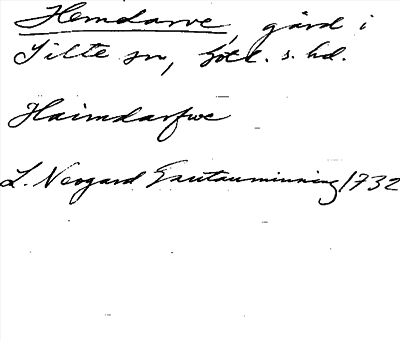 Hemdarve, gård i
Silte sn, Gotl. s. hd.
Haimdarfwe
L. Neogard Gautauminning 1732